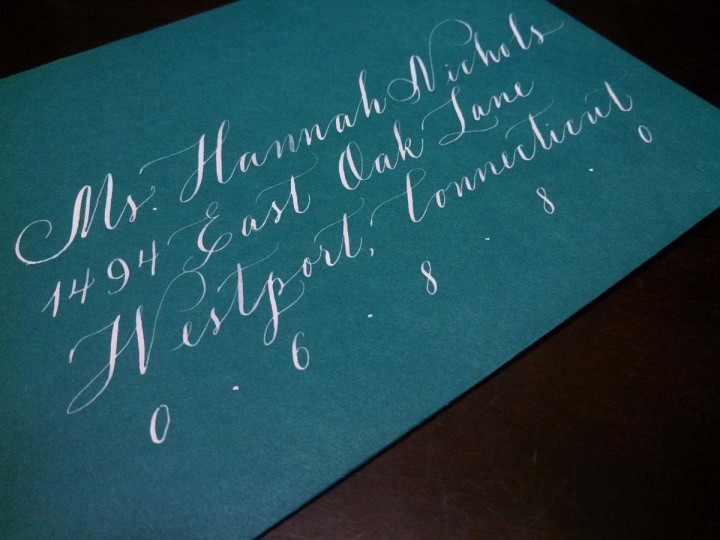 Ms. Hannah Nichols
1494 East Oak Lane
Westport, Connecticut
0 · 6 · 8 · 8 · 0